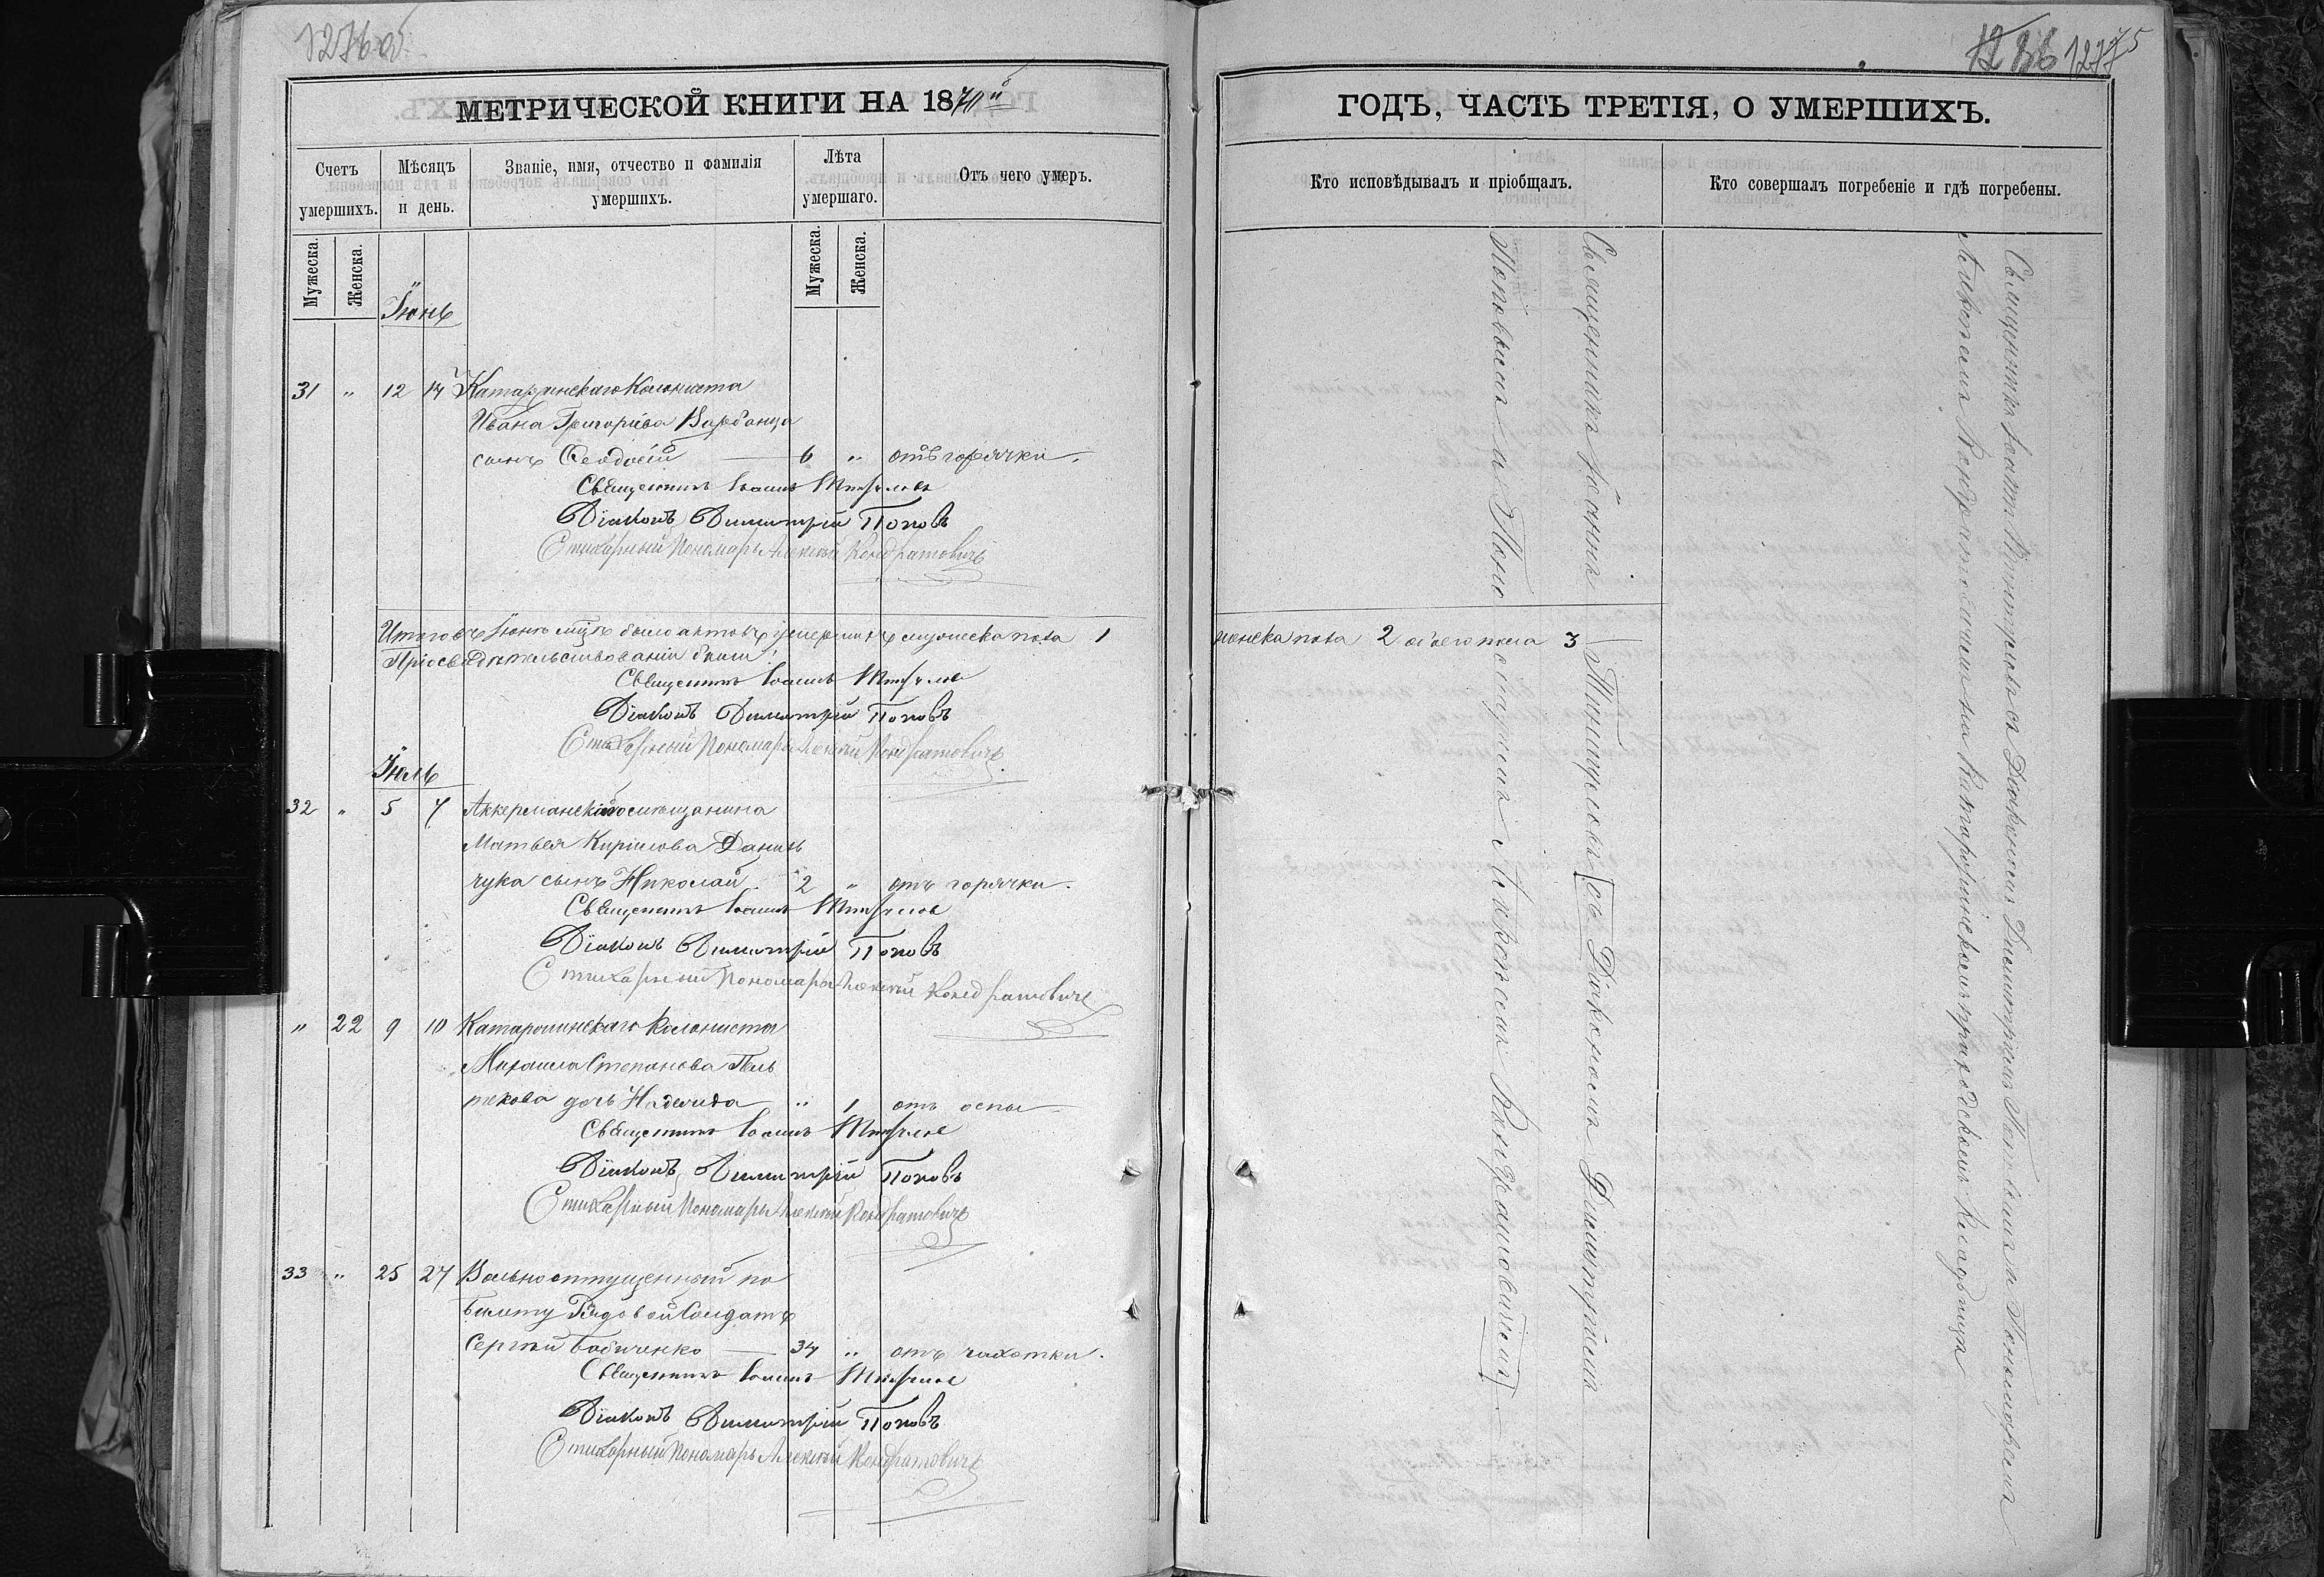 1276об
МЕТРИЧЕСКОЙ КНИГИ НА 1870й
Счетъ умершихъ.
Мѣсяцъ и день.
Званіе, имя, отчество и фамилія умершихъ.
Лѣта умершаго.
Отъ чего умеръ.
Мужеска.
Женска.
Мужеска.
Женска.
Іюнь
31 " 12 14 Катаржинскаго Колониста
Ивана Григоріева Варбанца
сынъ Ѳеодосій 6 " отъ горячки.
Священникъ Іоаннъ
Діаконъ Димитрій Поповъ
Стихарный Пономарь Алексѣй Кондратовичъ
Итого въ Іюнѣ мцѣ было актовъ умершихъ мужеска пола 1
При свидѣтельствованіи были:
Священникъ Іоаннъ
Діаконъ Димитрій Поповъ
Стихарный Пономарь Алексѣй Кондратовичъ
Іюль
32 " 5 7 Аккерманскаго мѣщанина
Матвея Кирилова Даниль
чука сынъ Николай 2 " отъ горячки.
Священникъ Іоаннъ
Діаконъ Димитрій Поповъ
Стихарный Пономарь Алексѣй Кондратовичъ
" 22 9 10 Катаржинскаго Колониста
Михаила Степанова
дочь Надежда " 1 отъ оспы
Священникъ Іоаннъ
Діаконъ Димитрій Поповъ
Стихарный Пономарь Алексѣй Кондратовичъ
33 " 25 27 Вольноотпущенный по
билету Рядовой Солдатъ
Сергѣй Бабиченко 34 " отъ чахотки.
Священникъ Іоаннъ
Діаконъ Димитрій Поповъ
Стихарный Пономарь Алексѣй Кондратовичъ
1277
ГОДЪ, ЧАСТЬ ТРЕТІЯ, О УМЕРШИХЪ.
Кто исповѣдывалъ и пріобщалъ.
Кто совершалъ погребеніе и гдѣ погребены.
женска пола 2 обоего пола 3
Священника Іоанна съ Діакономъ Димитріемъ
Поповымъ и Поно маремъ Алексѣемъ Кондратовичемъ
Священникъ Іоаннъ съ Діакономъ Димитріемъ Поповымъ и Пономаремъ
Алексѣемъ Кондратовичемъ на Катаржинскомъ приходскомъ Кладбищѣ